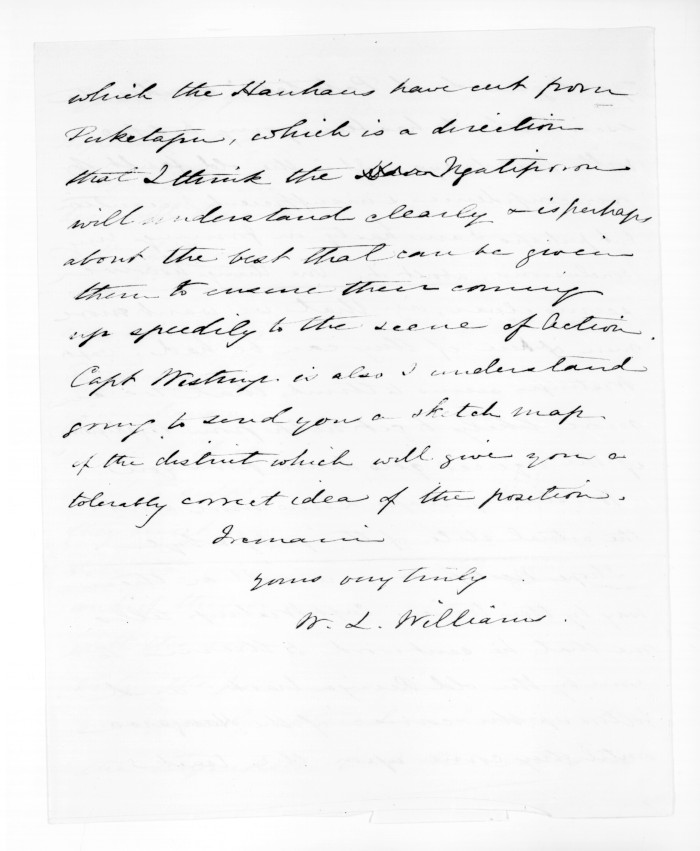 which the Hauhaus have cut from
Puketapu, which is a direction
that I think the Ngatiporou
will understand clearly & is perhaps
about the best that can be given
them to ensure their coming
up speedily to the scene of action.
Capt Westrup is also I understand
going to send you a sketch map
of the district which will give you a
tolerably correct idea of the position.
I remain
yours very truly
W. L. Williams.